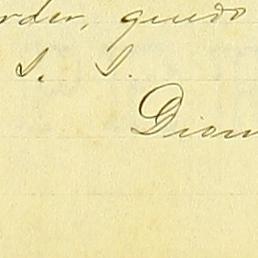 rder, quedo
S. S.
Dion